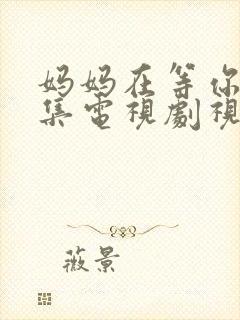 妈妈在等你
集電視劇視
薇景